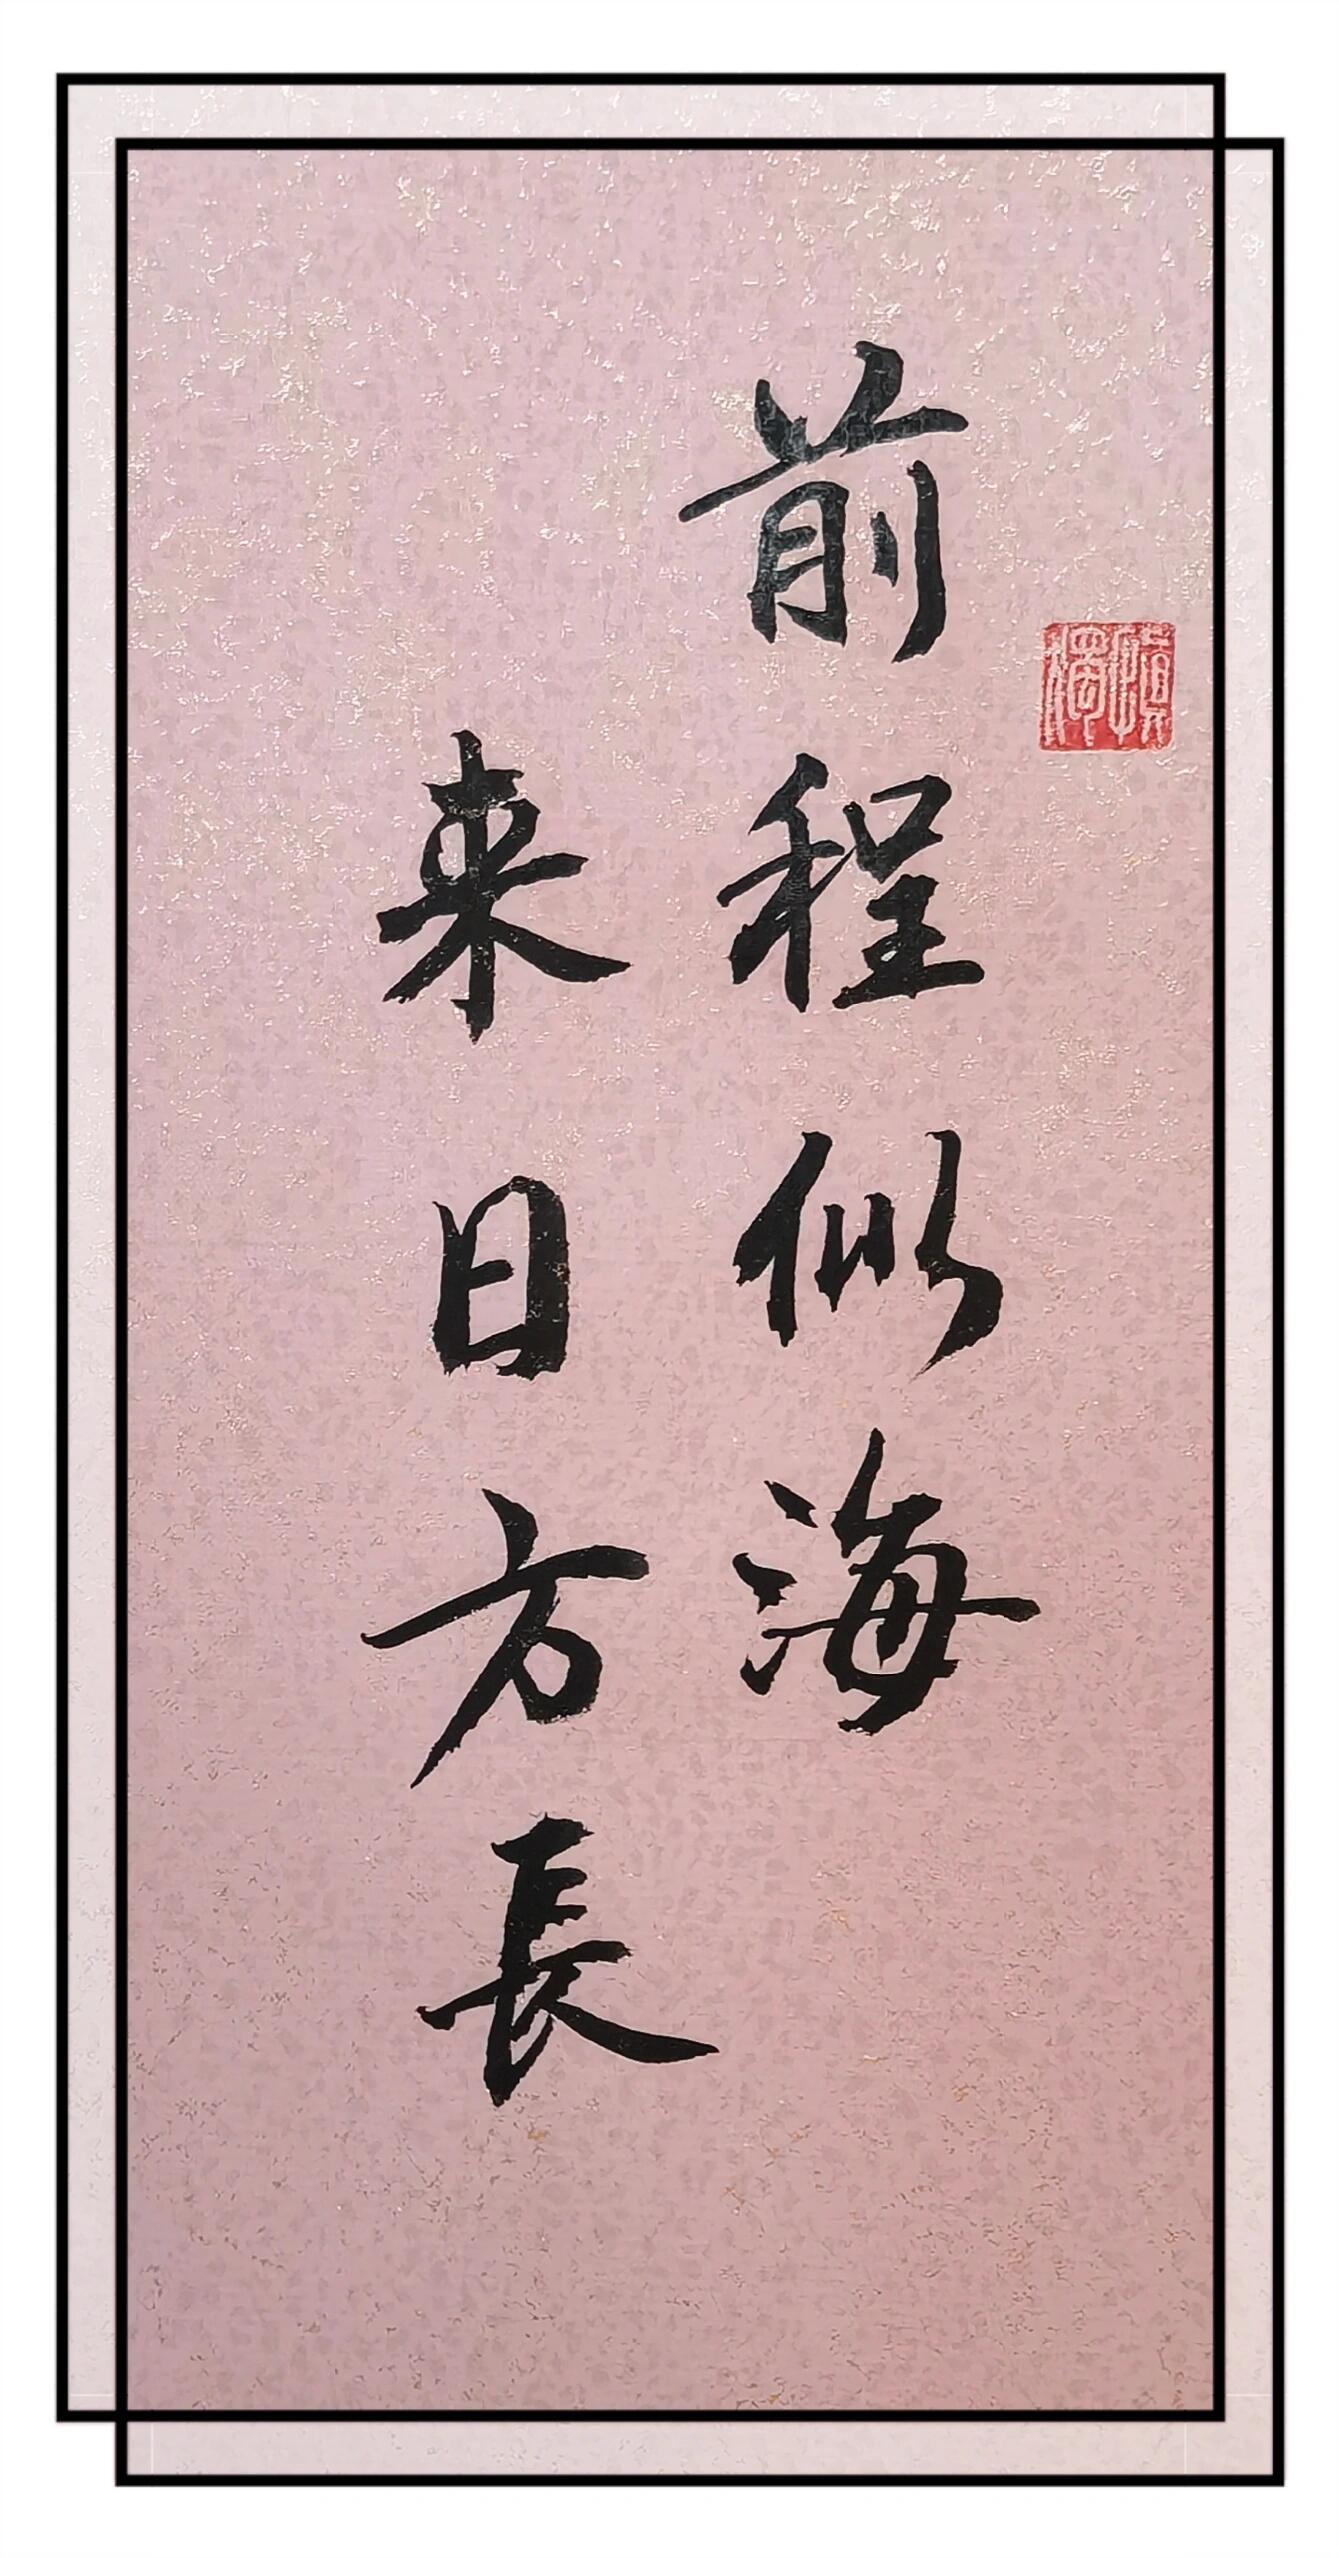 前程似海
来日方長